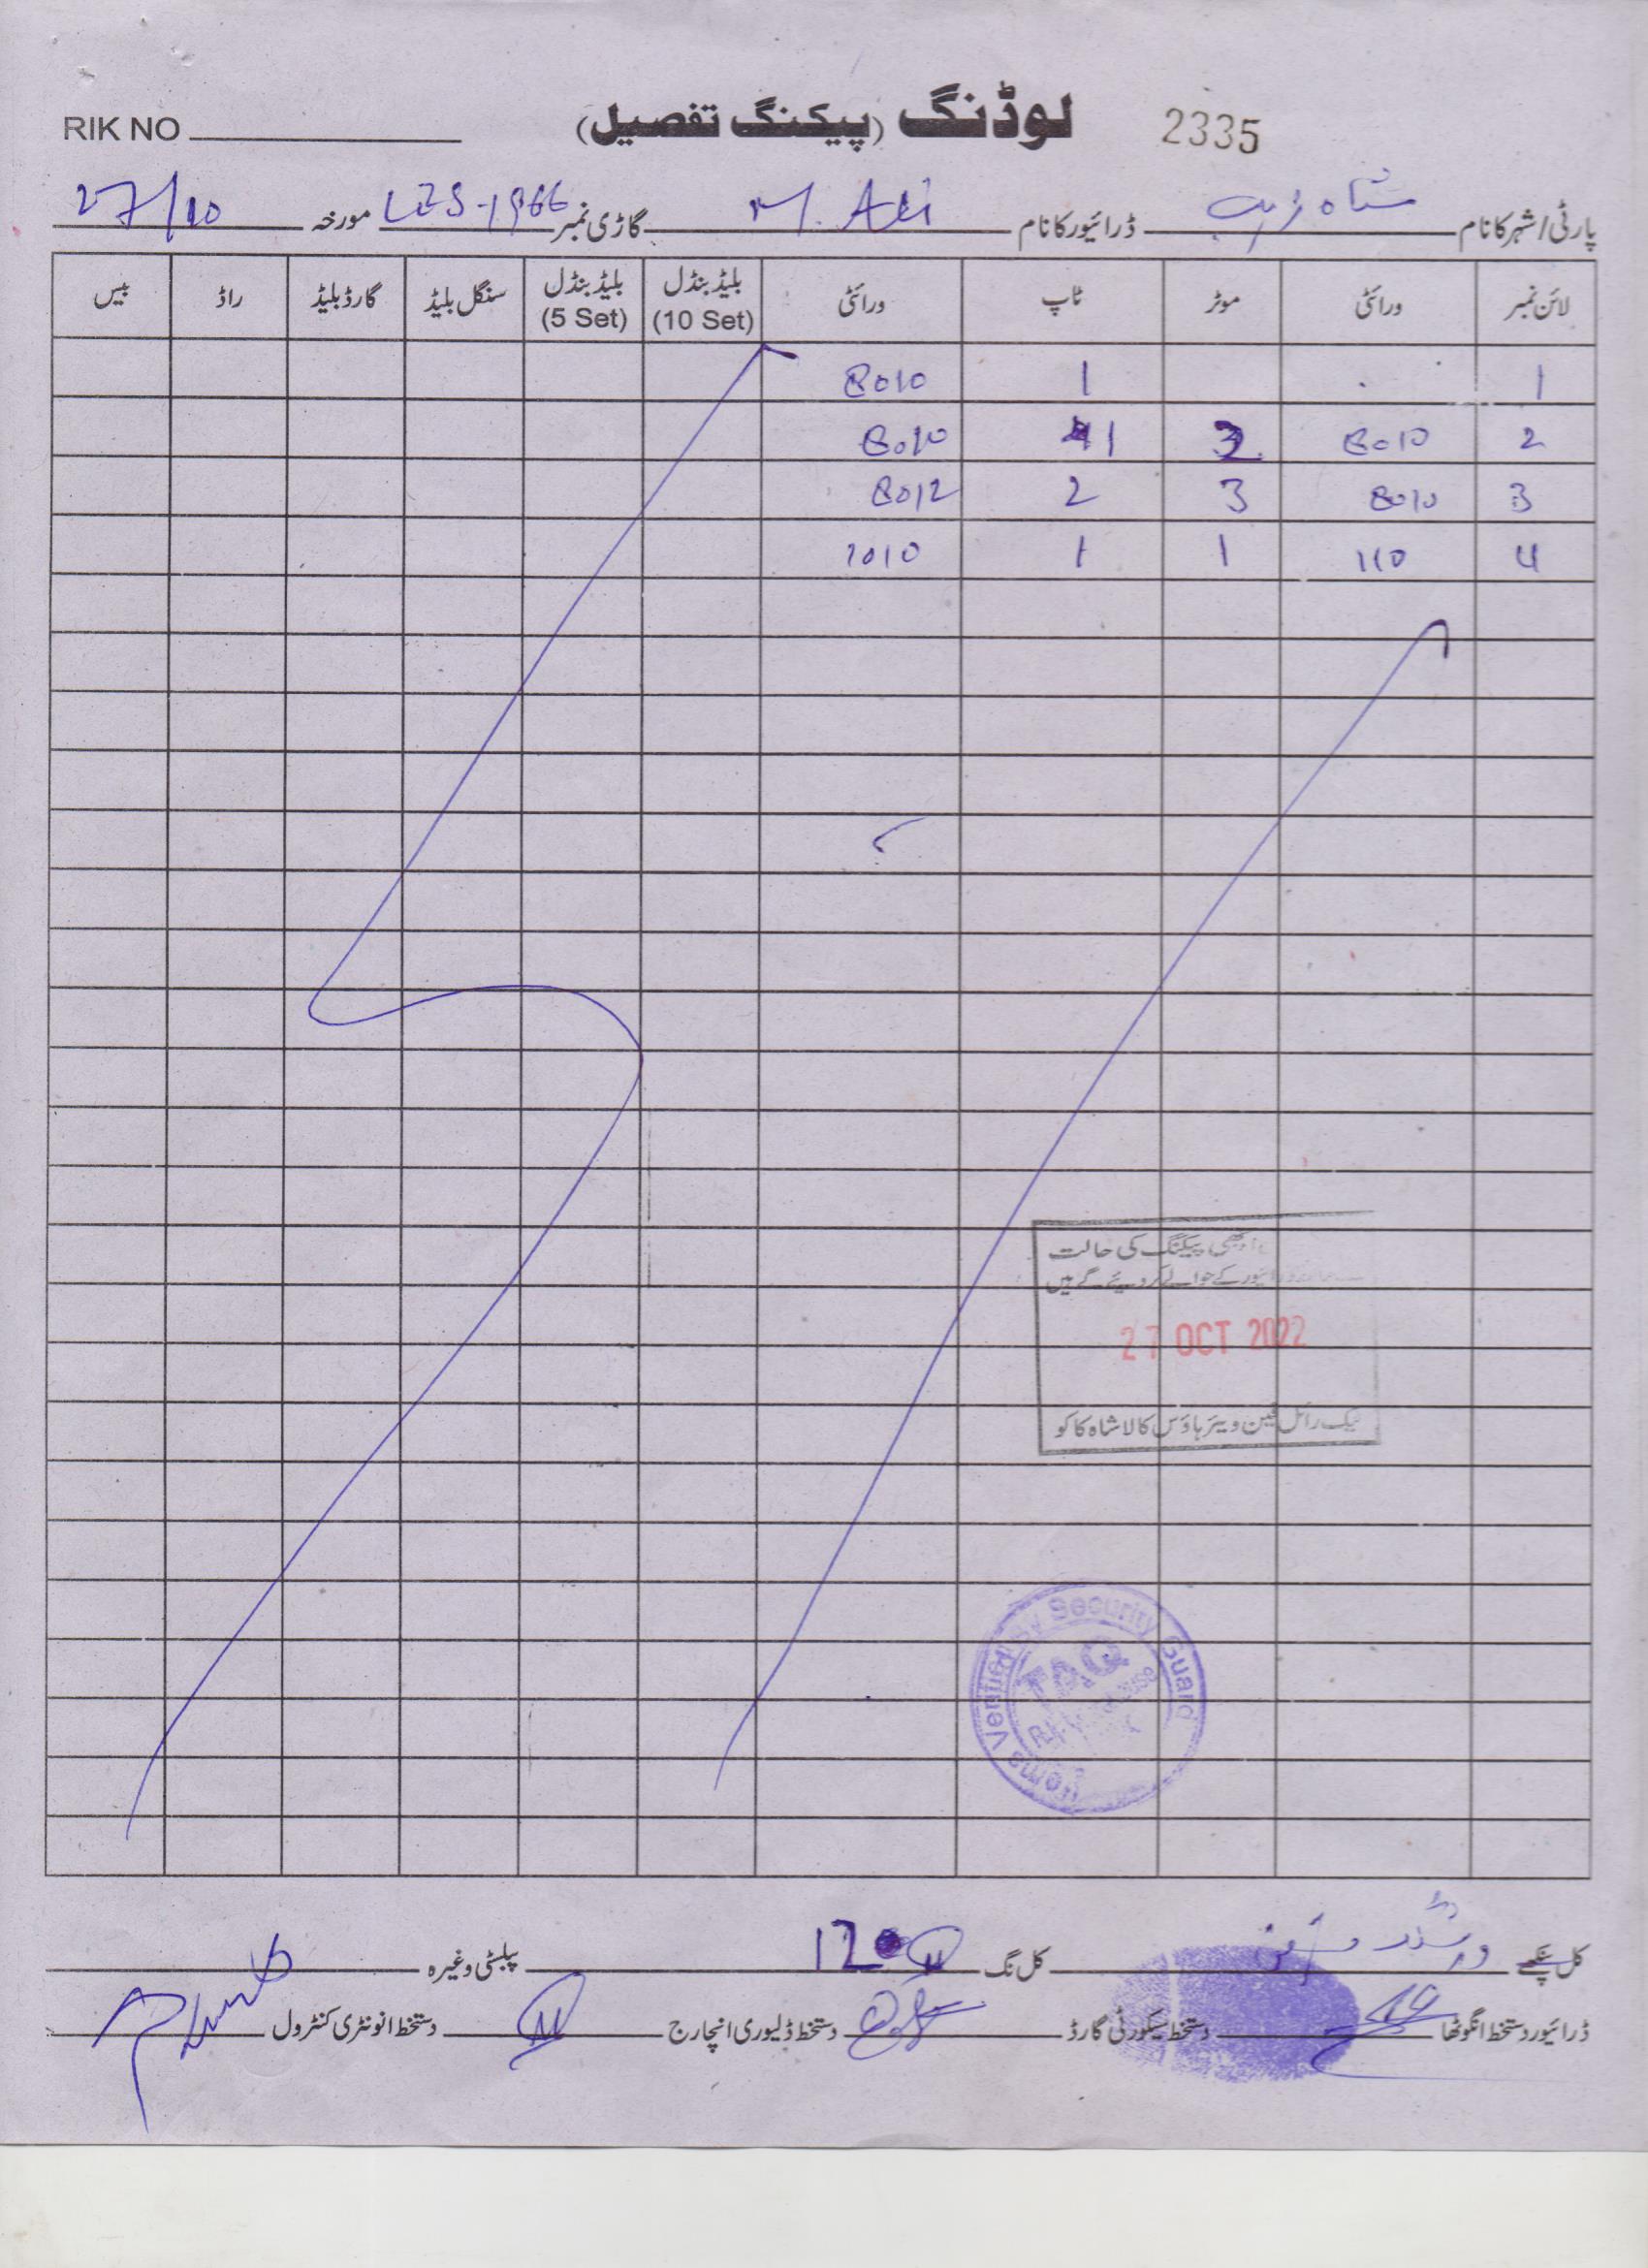 RIK NO لوڈنگ (پیکنگ تفصیل) 2335
پارٹی/شہر کا نام شاہ ڈرائیور کا نام M. Ali گاڑی نمبر LES-1966 مورخہ 27/10
لائن نمبر ورائٹی موٹر ٹاپ ورائٹی بلیڈ بنڈل (10 Set) بلیڈ بنڈل (5 Set) سنگل بلیڈ گارڈ بلیڈ راڈ بیس
1 1 8010
2 8010 2 1 8010
3 8010 3 2 8012
4 110 1 1 1010
اچھی پیکنگ کی حالت
ڈرائیور کے حوالے کر دیئے گئے ہیں
27 OCT 2022
ٹیک رائل فین ویئر ہاؤس کالا شاہ کاکو
Items Verified By Security Guard
TAQ
کل پنکھے کل نگ 12 پبلسٹی وغیرہ
ڈرائیور دستخط انگوٹھا دستخط سیکورٹی گارڈ دستخط ڈلیوری انچارج دستخط انونٹری کنٹرول